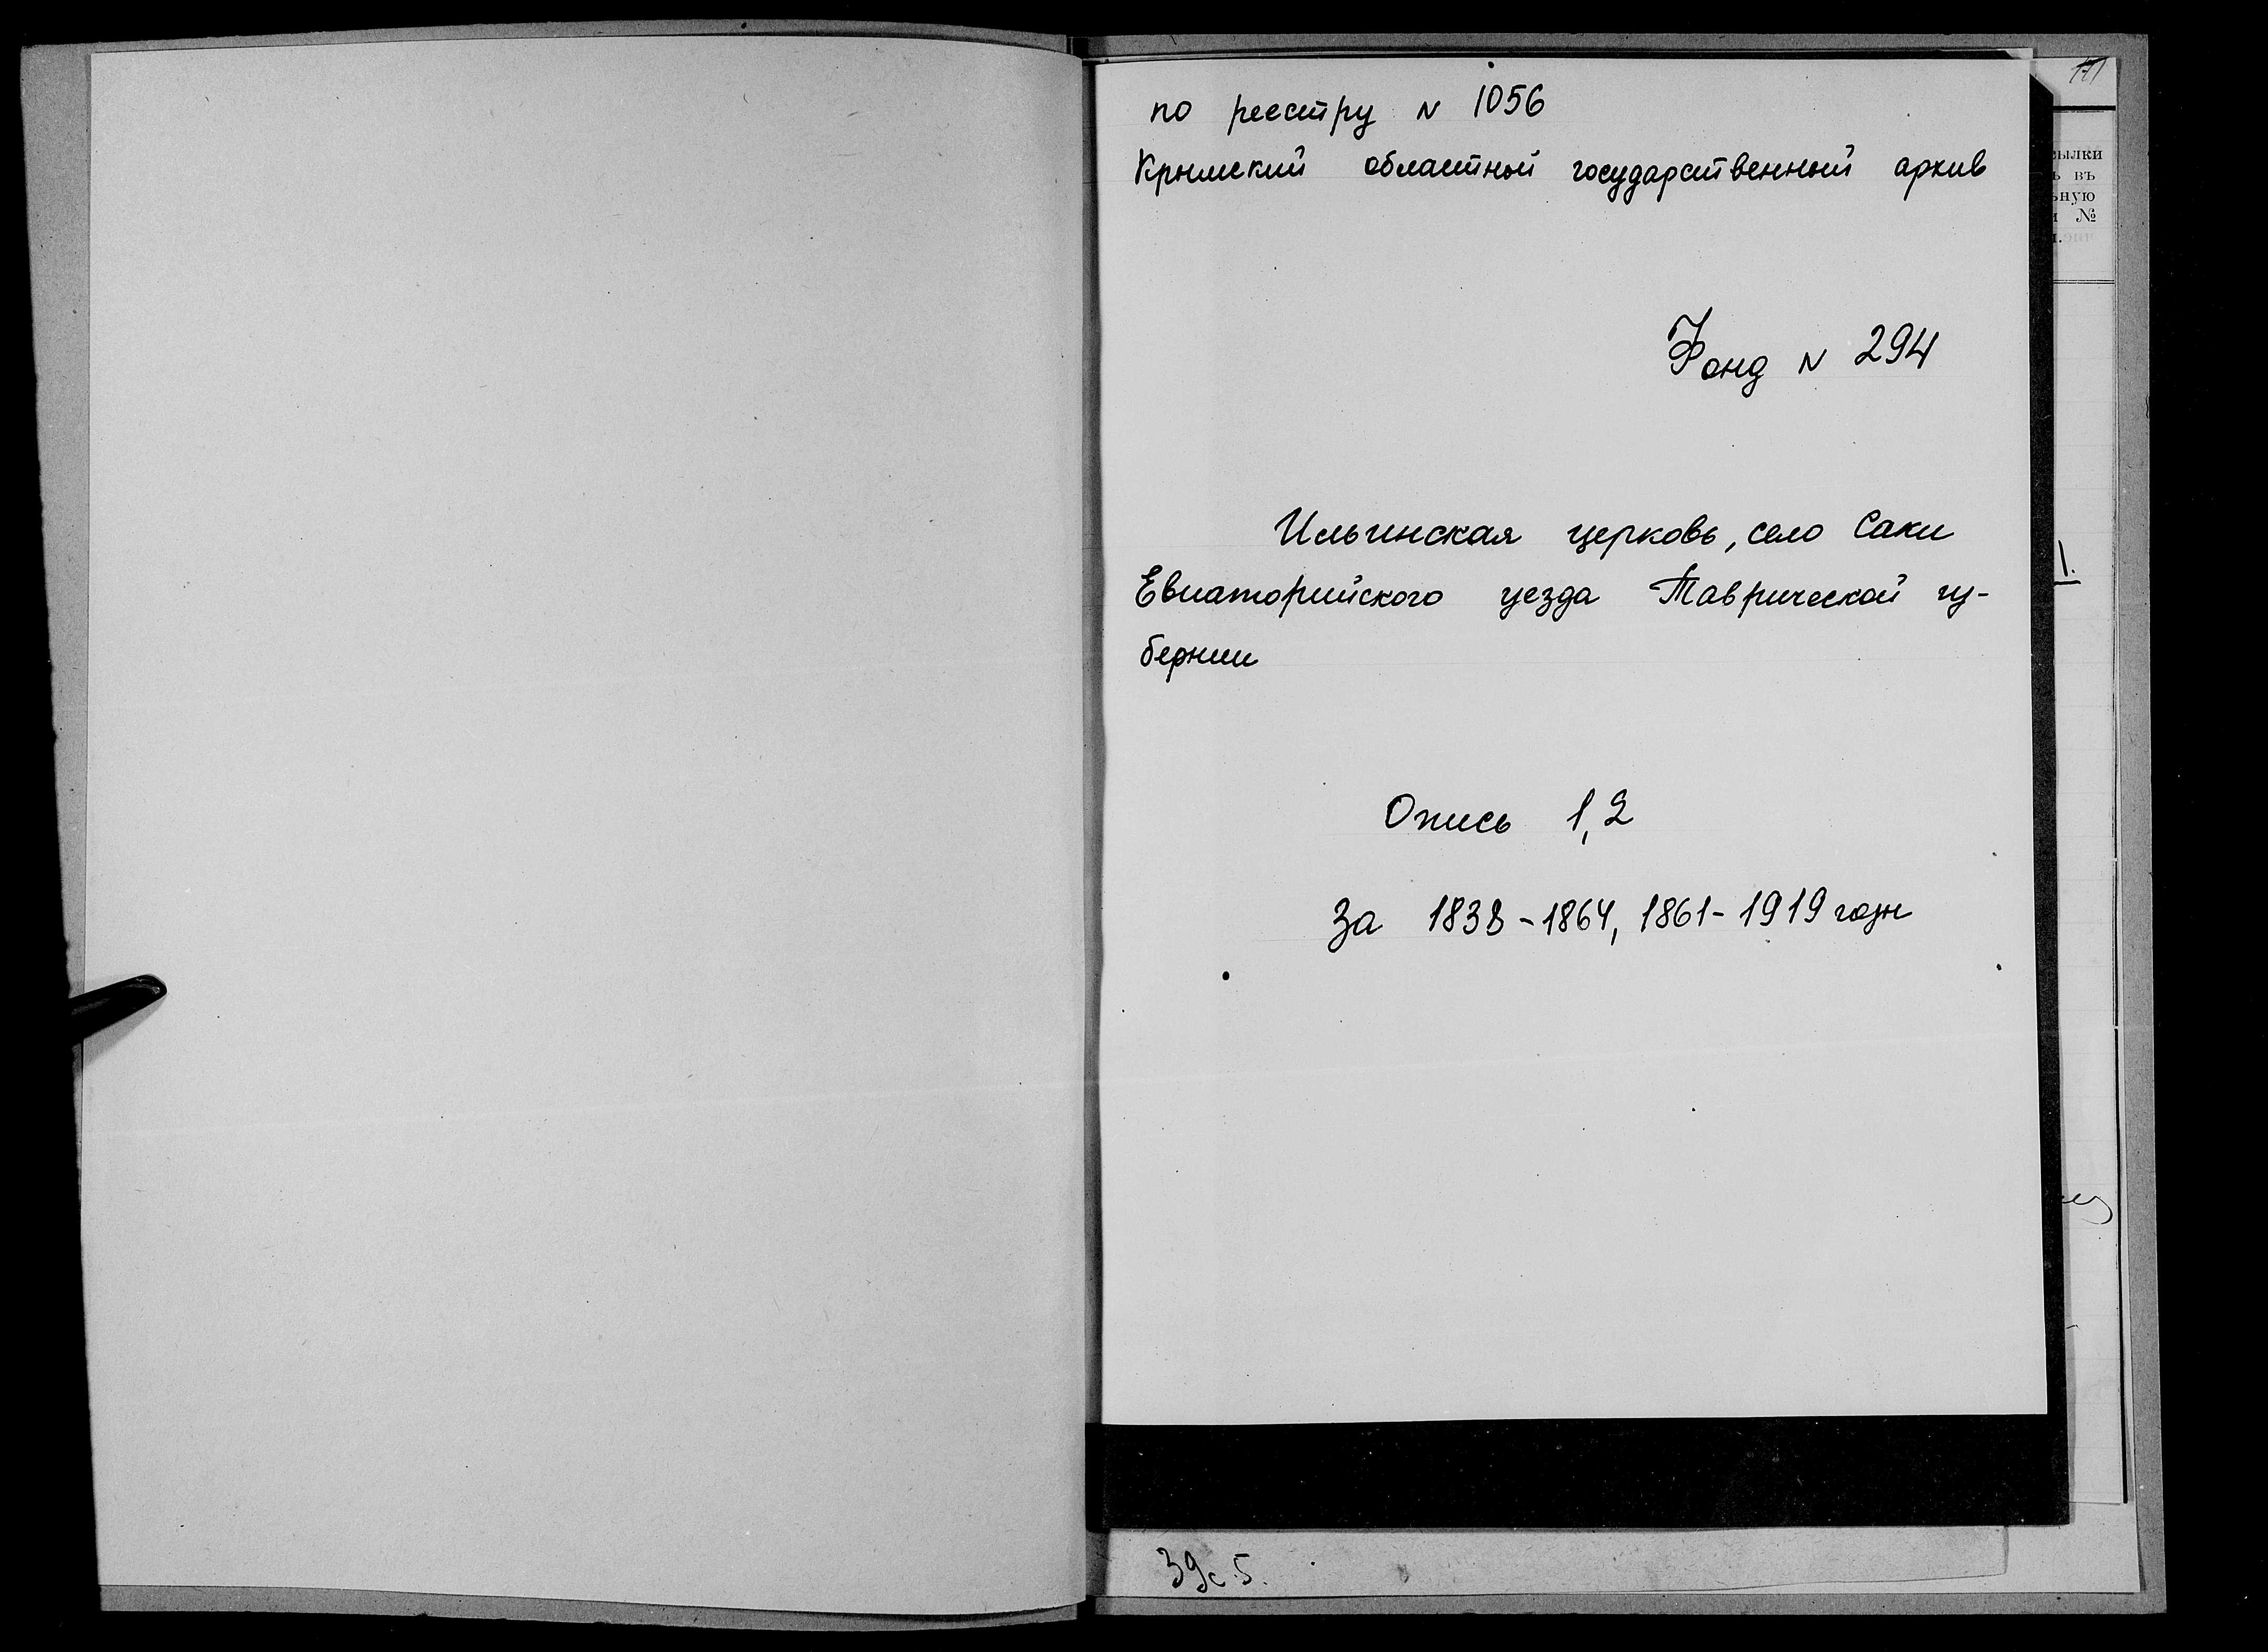 по реестру N 1056
Крымский областной государственный архив
Фонд N 294
Ильинская церковь, село Саки
Евпаторийского уезда Таврической гу-
бернии
Опись 1,2
За 1838-1864, 1861-1919 годы
39с.5.
171
сылки
ь въ
ьную
и №
1.